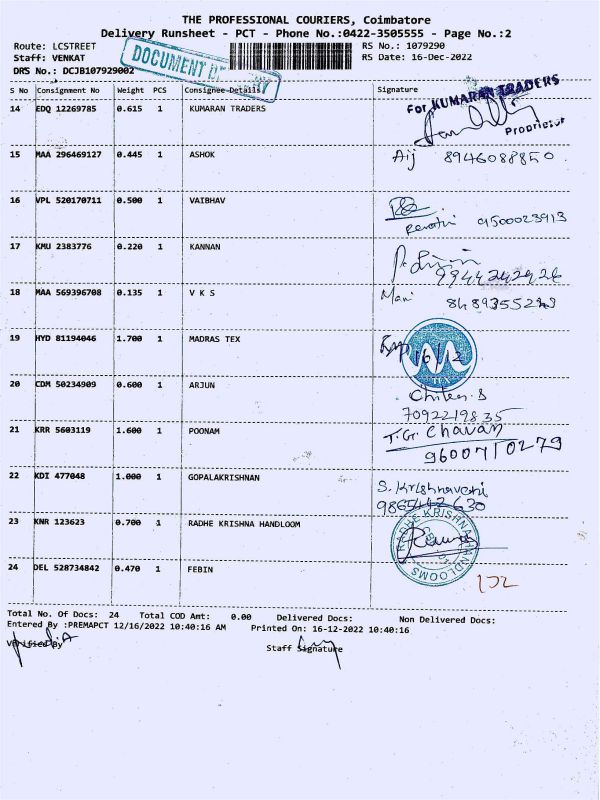 THE PROFESSIONAL COURIERS, Coimbatore
Delivery Runsheet - PCT - Phone No.:0422-3505555 - Page No.:2
Route: LCSTREET RS No.: 1079290
Staff: VENKAT RS Date: 16-Dec-2022
DRS No.: DCJB107929002
DOCUMENT
S No Consignment No Weight PCS Consignee Details Signature
14 EDQ 12269785 0.615 1 KUMARAN TRADERS
For KUMARAN TRADERS
Proprietor
15 MAA 296469127 0.445 1 ASHOK Aij 8946088850
16 VPL 520170711 0.500 1 VAIBHAV
Revathi 9500023913
17 KMU 2383776 0.220 1 KANNAN
9944242926
18 MAA 569396708 0.135 1 V K S Mani 8489355243
19 HYD 81194046 1.700 1 MADRAS TEX
16/12
TEX
20 CDM 50234909 0.600 1 ARJUN
7092219835
21 KRR 5603119 1.600 1 POONAM T.Gr. Chavan
9600710279
22 KDI 477048 1.000 1 GOPALAKRISHNAN S. Krishnaveni
9865142630
23 KNR 123623 0.700 1 RADHE KRISHNA HANDLOOM
RADHE KRISHNA HANDLOOMS
24 DEL 528734842 0.470 1 FEBIN
Total No. Of Docs: 24 Total COD Amt: 0.00 Delivered Docs: Non Delivered Docs:
Entered By :PREMAPCT 12/16/2022 10:40:16 AM Printed On: 16-12-2022 10:40:16
Verified By Staff Signature